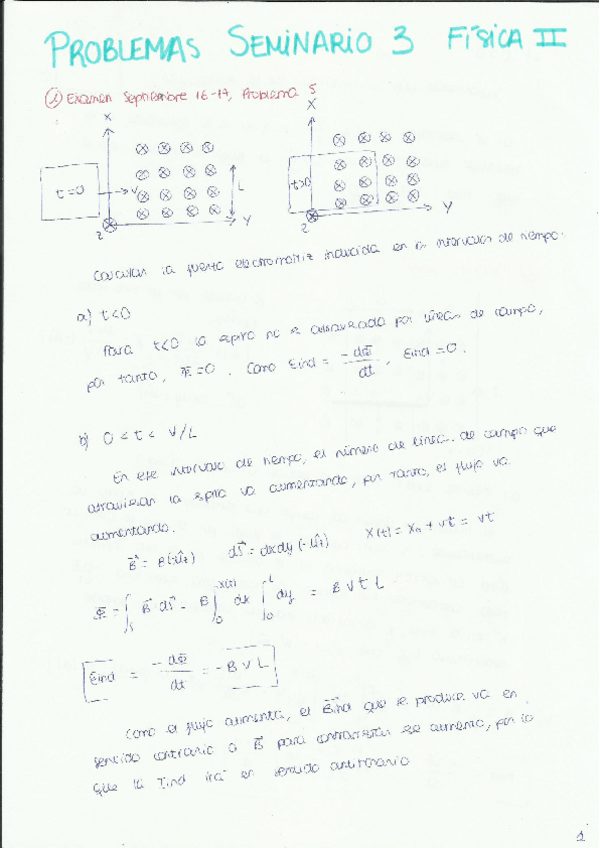 PROBLEMAS SEMINARIO 3 FÍSICA II
① Examen Septiembre 16-17, Problema 5
X X
t=0 v L t>0
Z Y Z Y
Calcular la fuerza electromotriz inducida en los intervalos de tiempo.
a) t<0
Para t<0 la espira no es atravesada por líneas de campo,
por tanto, Φ=0. Como Eind = -dΦ/dt, Eind=0.
b) 0 < t < V/L
En ese intervalo de tiempo, el número de líneas de campo que
atraviesan la espira va aumentando, por tanto, el flujo va
aumentando.
B⃗ = B(-ûz) dS⃗ = dxdy(-ûz) X(t) = X₀ + vt = vt
Φ = ∫s B⃗ dS⃗ = B ∫₀^X(t) dx ∫₀^L dy = B v t L
Eind = -dΦ/dt = -B v L
Como el flujo aumenta, el B⃗ind que se produce va en
sentido contrario a B⃗ para contrarrestar ese aumento, por lo
que la Iind irá en sentido antihorario
1